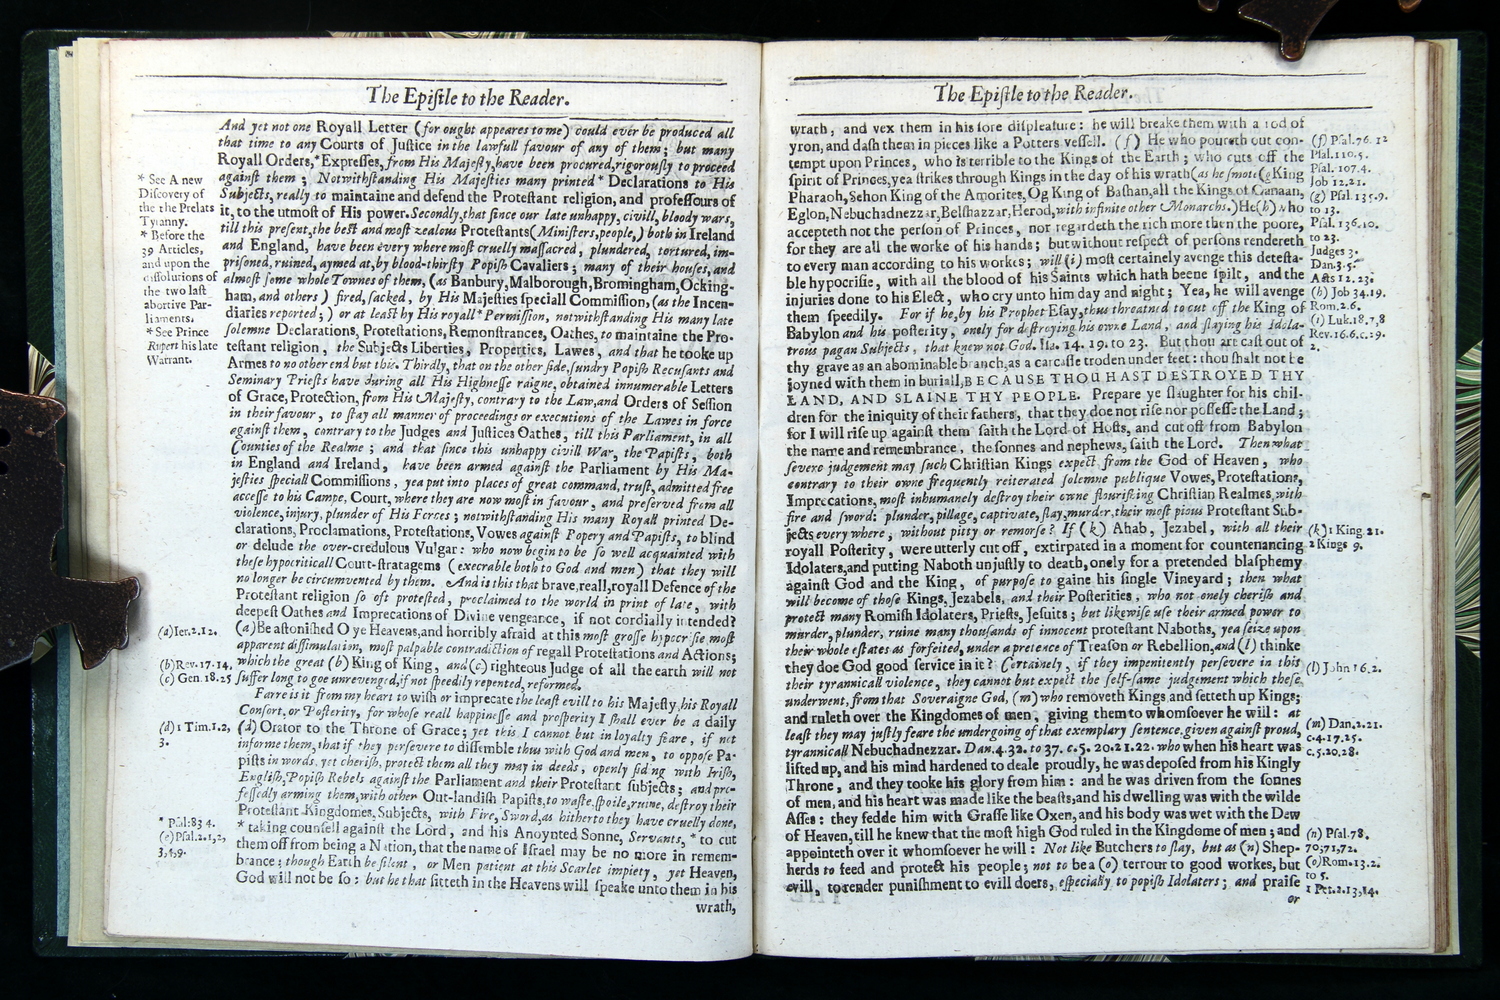 The Epistle to the Reader.
And yet not one Royall Letter (for ought appeares to me) could ever be produced all
that time to any Courts of Justice in the lawfull favour of any of them; but many
Royall Orders,*Expresses, from His Majesty, have been procured, rigorously to proceed
against them; Notwithstanding His Majesties many printed * Declarations to His
Subjects, really to maintaine and defend the Protestant religion, and professours of
it, to the utmost of His power. Secondly, that since our late unhappy, civill, bloody wars,
till this present, the best and most zealous Protestants (Ministers, people,) both in Ireland
and England, have been every where most cruelly massacred, plundered, tortured, im-
prisoned, ruined, aymed at, by blood-thirsty Popish Cavaliers; many of their houses, and
almost some whole Townes of them, (as Banbury, Malborough, Bromingham, Ocking-
ham, and others) fired, sacked, by His Majesties speciall Commission, (as the Incen-
diaries reported;) or at least by His royall * Permission, notwithstanding His many late
solemne Declarations, Protestations, Remonstrances, Oathes, to maintaine the Pro-
testant religion, the Subjects Liberties, Properties, Lawes, and that he tooke up
Armes to no other end but this. Thirdly, that on the other side, sundry Popish Recusants and
Seminary Priests have during all His Highnesse raigne, obtained innumerable Letters
of Grace, Protection, from His Majesty, contrary to the Law, and Orders of Session
in their favour, to stay all manner of proceedings or executions of the Lawes in force
against them, contrary to the Judges and Justices Oathes, till this Parliament, in all
Counties of the Realme; and that since this unhappy civill War, the Papists, both
in England and Ireland, have been armed against the Parliament by His Ma-
jesties speciall Commissions, yea put into places of great command, trust, admitted free
accesse to his Campe, Court, where they are now most in favour, and preserved from all
violence, injury, plunder of His Forces; notwithstanding His many Royall printed De-
clarations, Proclamations, Protestations, Vowes against Popery and Papists, to blind
or delude the over-credulous Vulgar: who now begin to be so well acquainted with
these hypocriticall Court-stratagems (execrable both to God and men) that they will
no longer be circumvented by them. And is this that brave, reall, royall Defence of the
Protestant religion so oft protested, proclaimed to the world in print of late, with
deepest Oathes and Imprecations of Divine vengeance, if not cordially intended?
(a) Be astonished O ye Heavens, and horribly afraid at this most grosse hypocrisie most
apparent dissimulation, most palpable contradiction of regall Protestations and Actions;
which the great (b) King of King, and (c) righteous Judge of all the earth will not
suffer long to goe unrevenged, if not speedily repented, reformed.
Farre is it from my heart to wish or imprecate the least evill to his Majesty, his Royall
Consort, or Posterity, for whose reall happinesse and prosperity I shall ever be a daily
(d) Orator to the Throne of Grace; yet this I cannot but in loyalty feare, if not
informe them, that if they persevere to dissemble thus with God and men, to oppose Pa-
pists in words, yet cherish, protect them all they may in deeds, openly siding with Irish,
English, Popish Rebels against the Parliament and their Protestant subjects; and pro-
fessedly arming them, with other Out-landish Papists, to waste, spoile, ruine, destroy their
Protestant Kingdomes, Subjects, with Fire, Sword, as hitherto they have cruelly done,
* taking counsell against the Lord, and his Anoynted Sonne, Servants, * to cut
them off from being a Nation, that the name of Israel may be no more in remem-
brance; though Earth be silent, or Men patient at this Scarlet impiety, yet Heaven,
God will not be so: but he that sitteth in the Heavens will speake unto them in his
wrath,
* See A new
Discovery of
the the Prelats
Tyranny.
* Before the
39 Articles,
and upon the
dissolutions of
the two last
abortive Par-
liaments.
* See Prince
Rupert his late
Warrant.
(a) Ier.2.12.
(b) Rev.17.14,
(c) Gen.18.25
(d) 1 Tim.1.2,
3.
* Psal:83 4.
(e) Psal.2.1,2,
3,4,9.
The Epistle to the Reader.
wrath, and vex them in his sore displeasure: he will breake them with a rod of
yron, and dash them in pieces like a Potters vessell. (f) He who poureth out con-
tempt upon Princes, who is terrible to the Kings of the Earth; who cuts off the
spirit of Princes, yea strikes through Kings in the day of his wrath (as he smote (g King
Pharaoh, Sehon King of the Amorites, Og King of Bashan, all the Kings of Canaan,
Eglon, Nebuchadnezzar, Belshazzar, Herod, with infinite other Monarchs.) He (h) who
accepteth not the person of Princes, nor regardeth the rich more then the poore,
for they are all the worke of his hands; but without respect of persons rendereth
to every man according to his workes; will (i) most certainely avenge this detesta-
ble hypocrisie, with all the blood of his Saints which hath beene spilt, and the
injuries done to his Elect, who cry unto him day and night; Yea, he will avenge
them speedily. For if he, by his Prophet Esay, thus threatned to cut off the King of
Babylon and his posterity, onely for destroying his owne Land, and slaying his Idola-
trous pagan Subjects, that knew not God. Isa. 14. 19. to 23. But thou art cast out of
thy grave as an abominable branch, as a carcasse troden under feet: thou shalt not be
joyned with them in buriall, BECAUSE THOU HAST DESTROYED THY
LAND, AND SLAINE THY PEOPLE. Prepare ye slaughter for his chil-
dren for the iniquity of their fathers, that they doe not rise nor possesse the Land;
for I will rise up against them saith the Lord of Hosts, and cut off from Babylon
the name and remembrance, the sonnes and nephews, saith the Lord. Then what
severe judgement may such Christian Kings expect from the God of Heaven, who
contrary to their owne frequently reiterated solemne publique Vowes, Protestations,
Imprecations, most inhumanely destroy their owne flourishing Christian Realmes, with
fire and sword: plunder, pillage, captivate, slay, murder, their most pious Protestant Sub-
jects every where, without pitty or remorse? If (k) Ahab, Jezabel, with all their
royall Posterity, were utterly cut off, extirpated in a moment for countenancing
Idolaters, and putting Naboth unjustly to death, onely for a pretended blasphemy
against God and the King, of purpose to gaine his single Vineyard; then what
will become of those Kings, Jezabels, and their Posterities, who not onely cherish and
protect many Romish Idolaters, Priests, Jesuits; but likewise use their armed power to
murder, plunder, ruine many thousands of innocent protestant Naboths, yea seize upon
their whole estates as forfeited, under a pretence of Treason or Rebellion, and (l) thinke
they doe God good service in it? Certainely, if they impenitently persevere in this
their tyrannicall violence, they cannot but expect the self-same judgement which these
underwent, from that Soveraigne God, (m) who removeth Kings, and setteth up Kings;
and ruleth over the Kingdomes of men, giving them to whomsoever he will: at
least they may justly feare the undergoing of that exemplary sentence, given against proud,
tyrannicall Nebuchadnezzar. Dan.4.32. to 37. c.5. 20.21.22. who when his heart was
lifted up, and his mind hardened to deale proudly, he was deposed from his Kingly
Throne, and they tooke his glory from him: and he was driven from the sonnes
of men, and his heart was made like the beasts, and his dwelling was with the wilde
Asses: they fedde him with Grasse like Oxen, and his body was wet with the Dew
of Heaven, till he knew that the most high God ruled in the Kingdome of men; and
appointeth over it whomsoever he will: Not like Butchers to slay, but as (n) Shep-
herds to feed and protect his people; not to be a (o) terrour to good workes, but
evill, to render punishment to evill doers, especially to popish Idolaters; and praise
or
(f) Psal.76. 12
Psal.110.5.
Psal. 107.4.
Job 12.21.
(g) Psal. 135.9.
to 13.
Psal. 136.10.
to 23.
Judges 3.
Dan.3.5.
Acts 12.23.
(h) Job 34.19.
Rom.2.6.
(i) Luk.18.7,8
Rev.16.6.c.19.
2.
(k) 1 King 21.
2 Kings 9.
(l) John 16.2.
(m) Dan.2.21.
c.4.17.25.
c.5.20.28.
(n) Psal.78.
70,71,72.
(o) Rom.13.2.
to 5.
1 Pet.2.13,14.